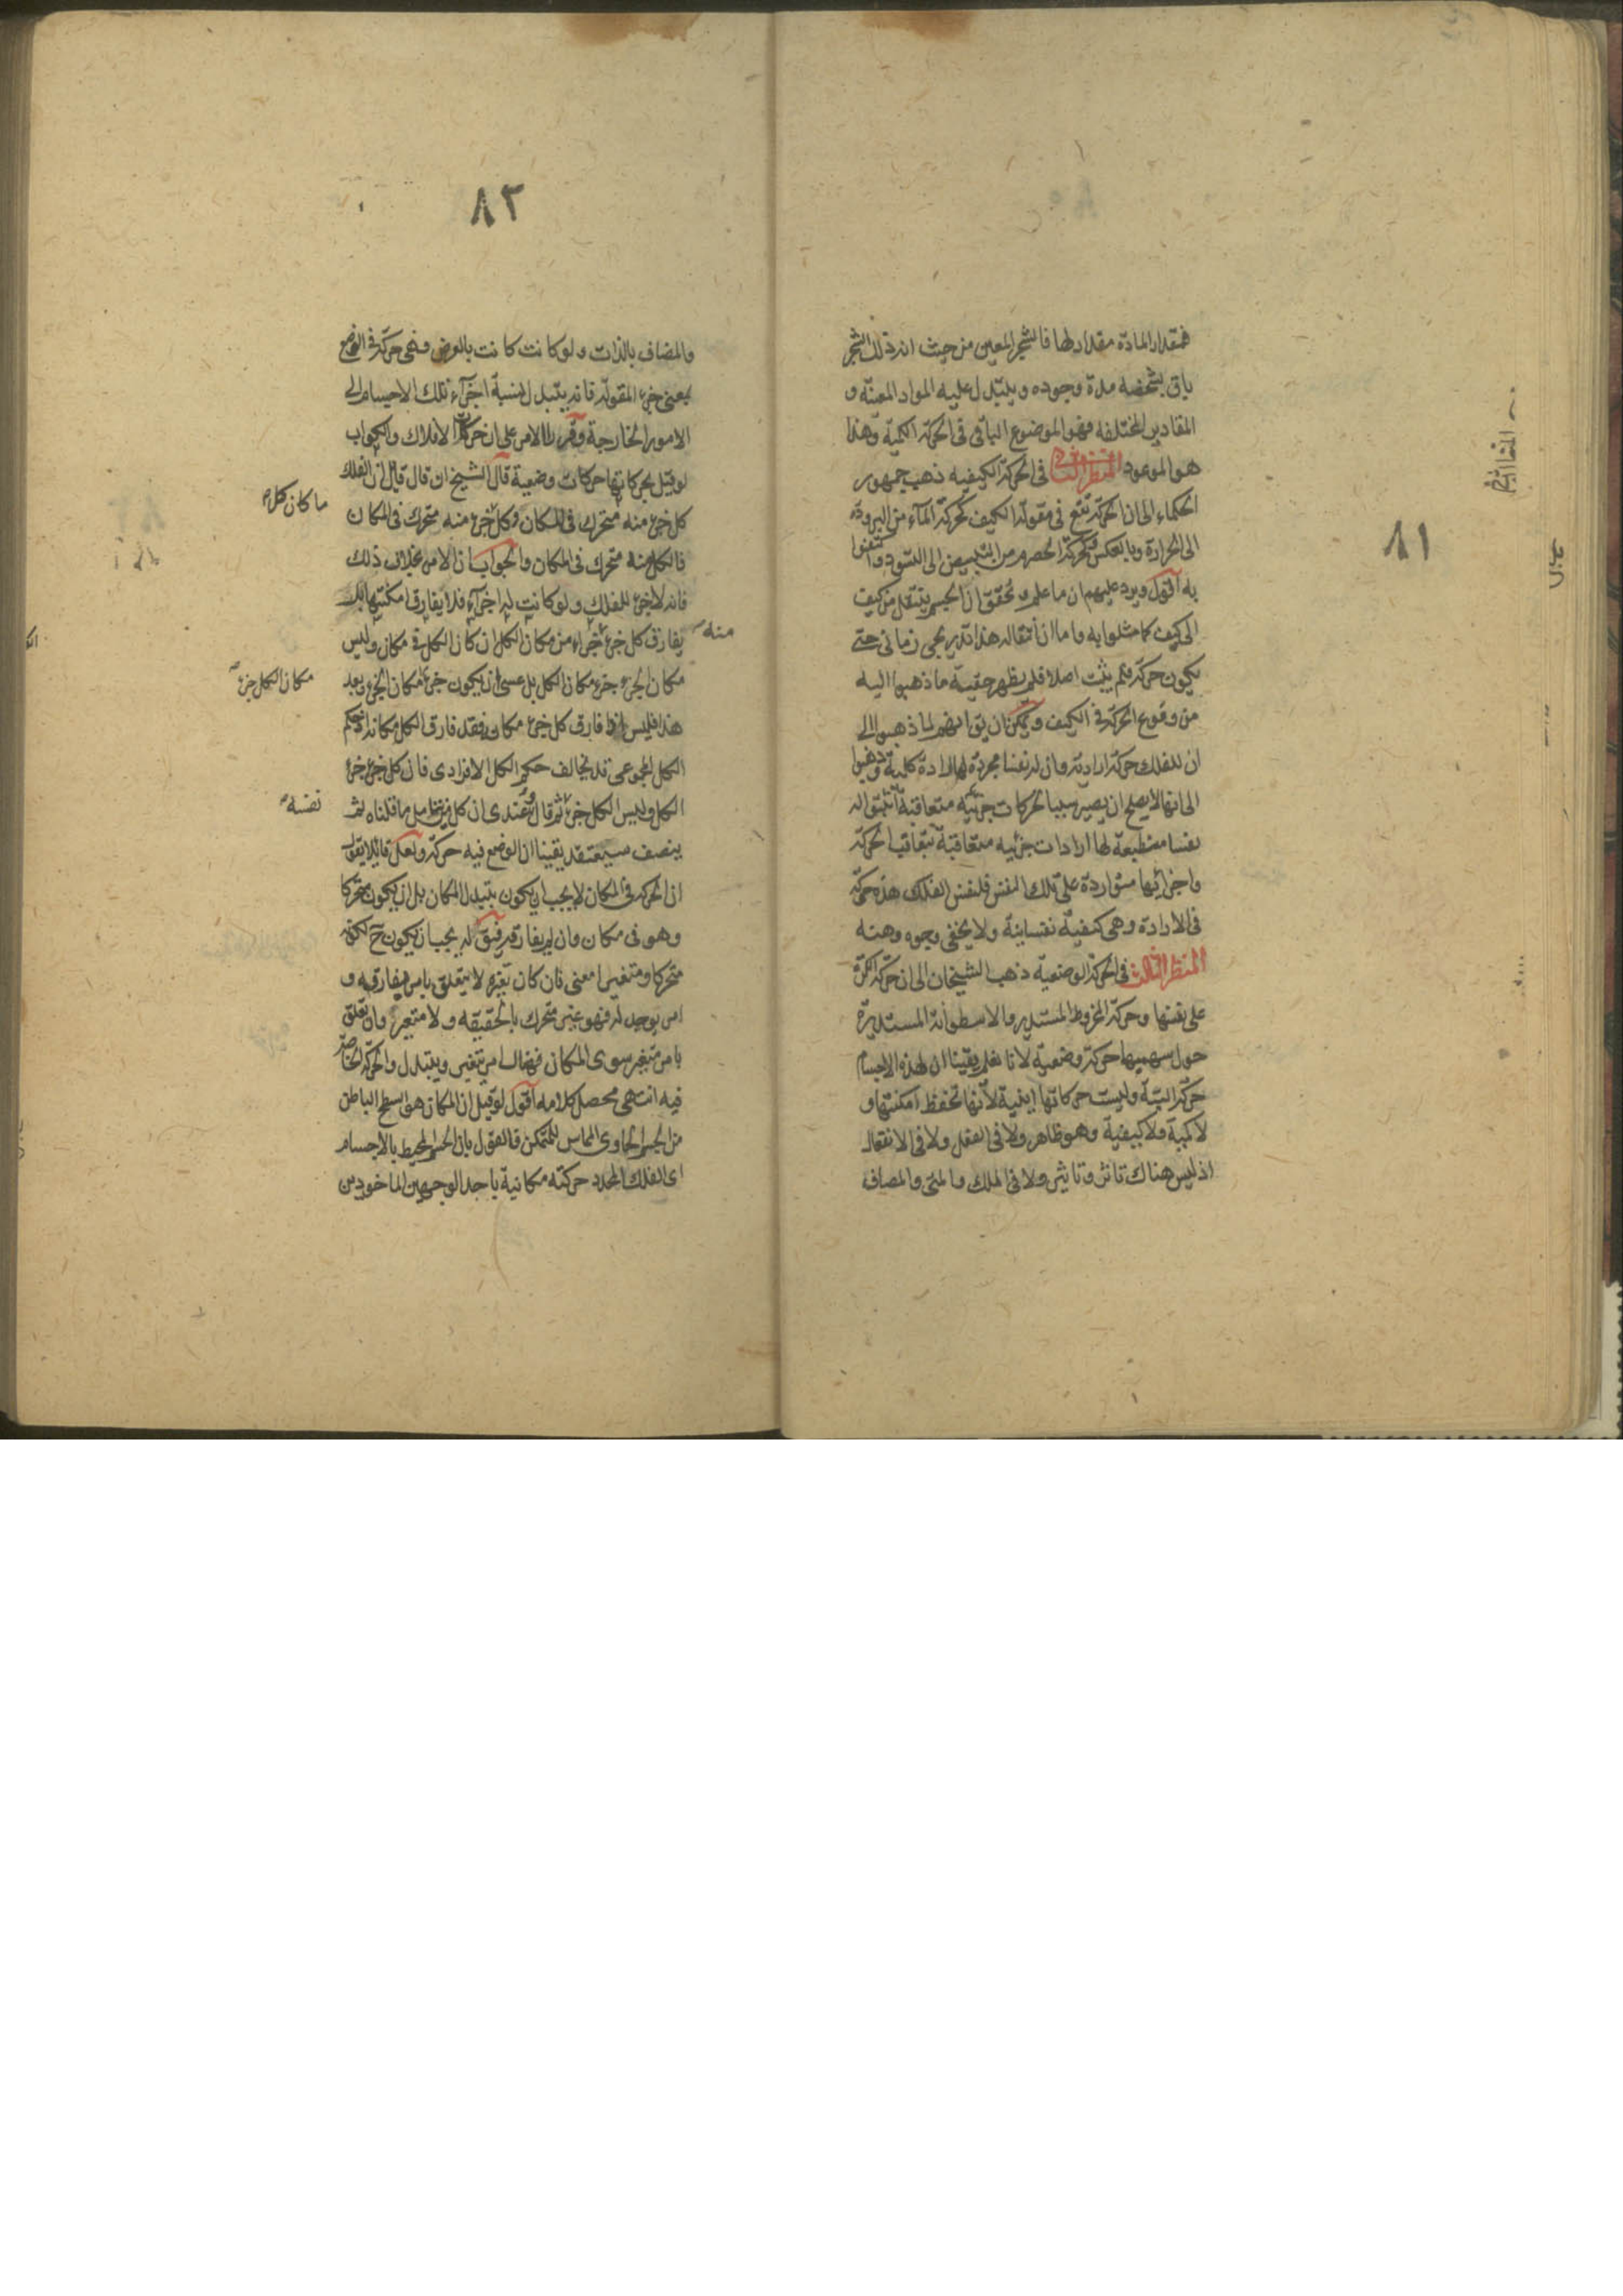 ٨١
فمقدار المادة مقدار لها فالشجر المعين من حيث انه ذلك الشجر
باق بشخصه مدة وجوده ويتبدل عليه المواد المعينة و
المقادير المختلفة فهو الموضوع الباقى فى الحركة الكمية وهذا
هو الموعود المنظر الثانى فى الحركة الكيفيه ذهب جمهور
الحكماء الى ان الحركة تقع فى مقولة الكيف كحركة المآء من البرودة
الى الحرارة وبالعكس وكحركة الحصرم من التبييض الى التسود واكتفوا
به اقول ويرد عليهم ان ما علم وتحقق ان الجسم ينتقل من كيف
الى كيف كما مثلوا به واما ان انتقاله هذا تدريجى زمانى حتى
يكون حركة فلم يثبت اصلا فلم يظهر حقية ما ذهبوا اليه
من وقوع الحركة فى الكيف ويمكن ان يق انهم لما ذهبوا الى
ان للفلك حركة ارادية وان له نفسا مجردة لها ارادة كلية وذهبوا
الى انها لا يصلح ان يصير سببا لحركات جزئية متعاقبة اثبتوا له
نفسا منطبعة لها ارادات جزئيه متعاقبة بتعاقب الحركة
واجزائها متواردة على تلك النفس فلنفس الفلك هذه حركة
فى الارادة وهى كيفية نفسانية ولا يخفى وجوه وهنه
المنظر الثالث فى الحركة الوضعية ذهب الشيخان الى ان حركة الكرة
على نفسها وحركة المخروط المستدير والاسطوانة المستديرة
حول سهميها حركة وضعية لانا نعلم يقينا ان لهذه الاجسام
حركة البتة وليست حركاتها اينية لانها تحفظ امكنتها و
لا كمية ولا كيفية وهو ظاهر ولا فى الفعل ولا فى الانفعال
اذ ليس هناك تاثر وتاثير ولا فى الملك والمتى والمضاف
٨٢
والمضاف بالذات ولو كانت كانت بالعرض فهى حركة فى الوضع
بمعنى جزء المقولة فانه يتبدل نسبة اجزآء تلك الاجسام الى
الامور الخارجة وقرر الامر على ان حركات الافلاك والكواكب
لو قيل بحركاتها حركات وضعية قال الشيخ ان قال قائل ان الفلك
كل جزء منه متحرك فى المكان وكل جزء منه متحرك فى المكان
ما كان كل
فالكل منه متحرك فى المكان والجواب ان الامر بخلاف ذلك
فانه لا جزء للفلك ولو كانت له اجزآء فلا يفارق امكنتها بل
يفارق كل جزء جزء من مكان الكل ان كان الكل فى مكان وليس
منه
مكان الجزء جزء مكان الكل بل عسى ان يكون جزء مكان الجزء وبعد
مكان الكل جزء
هذا فليس اذا فارق كل جزء مكانه فقد فارق الكل مكانه اذ حكم
الكل المجموعى قد يخالف حكم الكل الافرادى فان كل جزء جزء
الكل وليس الكل جزء ثم قال وعندى ان كل من تامل ما قلناه ثم
نفسه
ينصف سيعتقد يقينا ان الوضع فيه حركة ولعل قائلا يقول
ان الحركة فى المكان لا يجب ان يكون بتبدل المكان بل ان يكون متحركا
وهو فى مكان وان لم يفارقه فيق له يجب ان يكون ح لكونه
متحركا ومتغيرا معنى فان كان تغيره لا يتعلق بامر يفارقه و
امر يوجد له فهو غير متحرك بالحقيقه ولا متغير وان تعلق
بامر متغير سوى المكان فهناك امر يتغير ويتبدل والحركة الخاصة
فيه انتهى محصل كلامه اقول لو قيل ان المكان هو السطح الباطن
من الجسم الحاوى المماس للمتمكن فالقول بان الجسم المحيط بالاجسام
اى الفلك المحدد حركته مكانية باحد الوجهين الماخودين